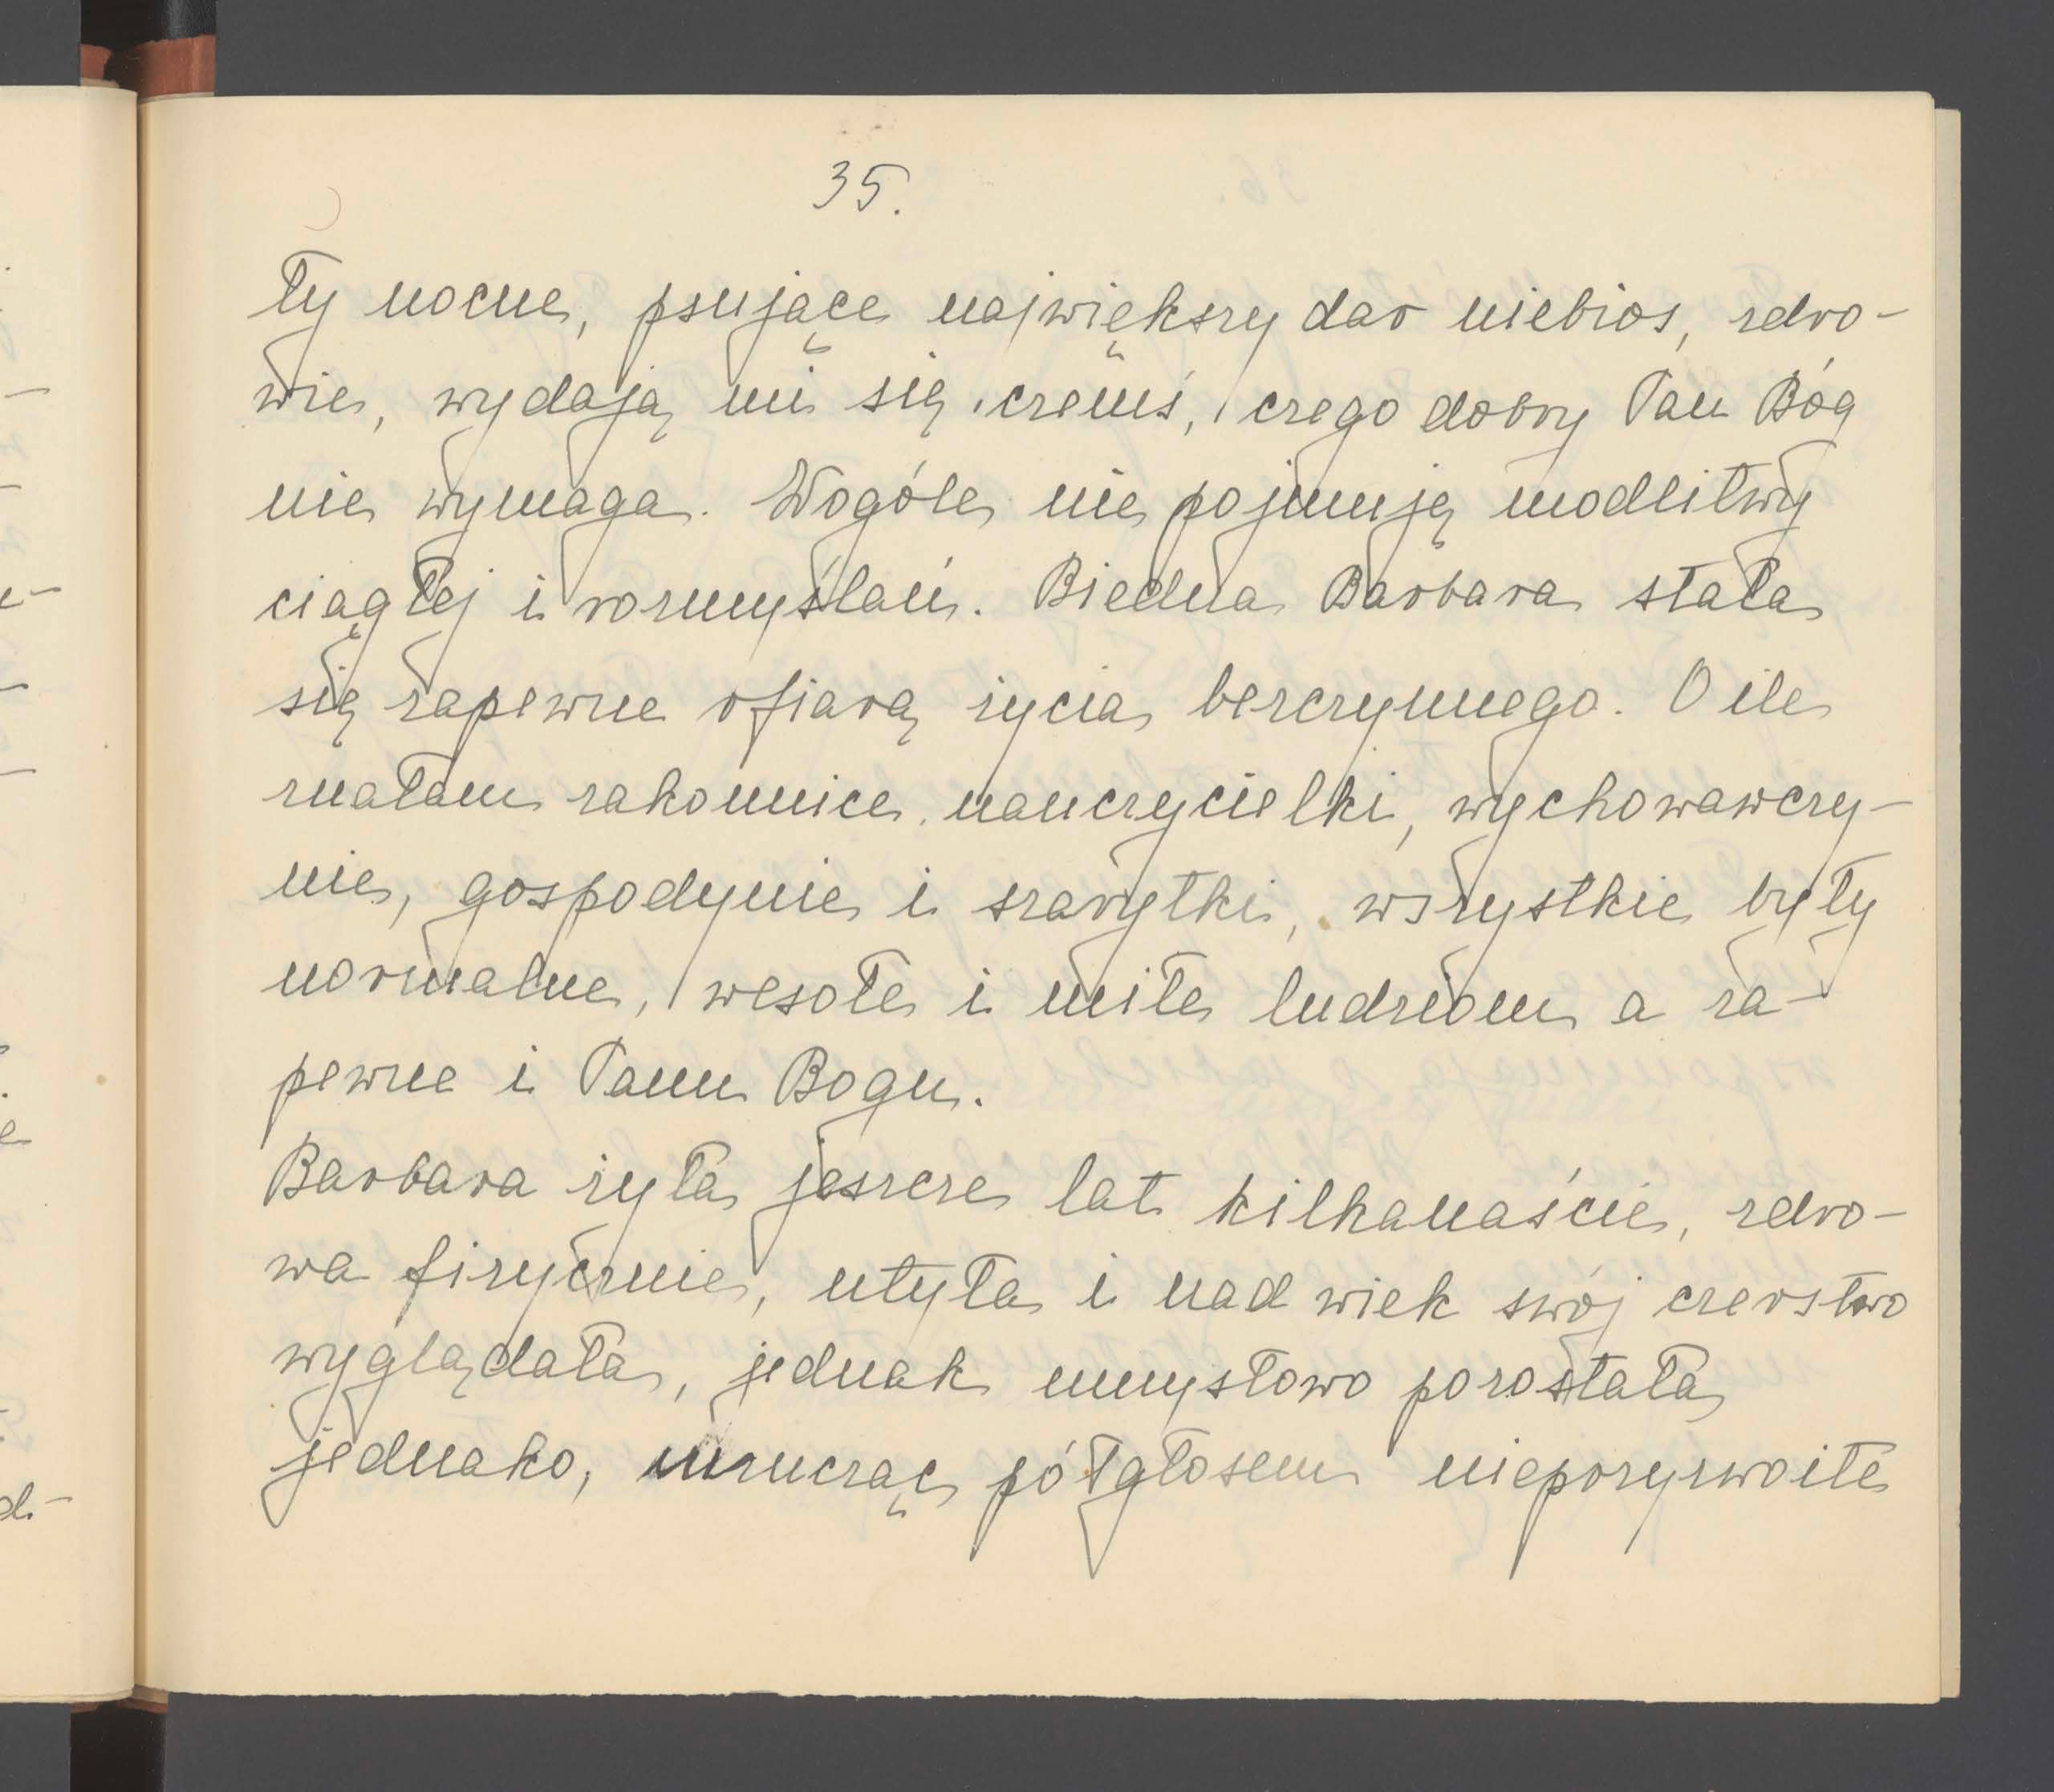 35.
ły nocne, psujące największy dar niebios, zdro-
wie, wydają mi się czemś, czego dobry Pan Bóg
nie wymaga. Wogóle nie pojmuję modlitwy
ciągłej i rozmyślań. Biedna Barbara stała
się zapewne ofiarą życia bezczynnego. O ile
znałam zakonnice nauczycielki, wychowawczy-
nie, gospodynie i szarytki, wszystkie były
normalne, wesołe i miłe ludziom a za-
pewne i Panu Bogu.
Barbara żyła jeszcze lat kilkanaście, zdro-
wa fizycznie, utyła i nad wiek swój czerstwo
wyglądała, jednak umysłowo pozostała
jednako, mrucząc półgłosem nieprzyzwoite